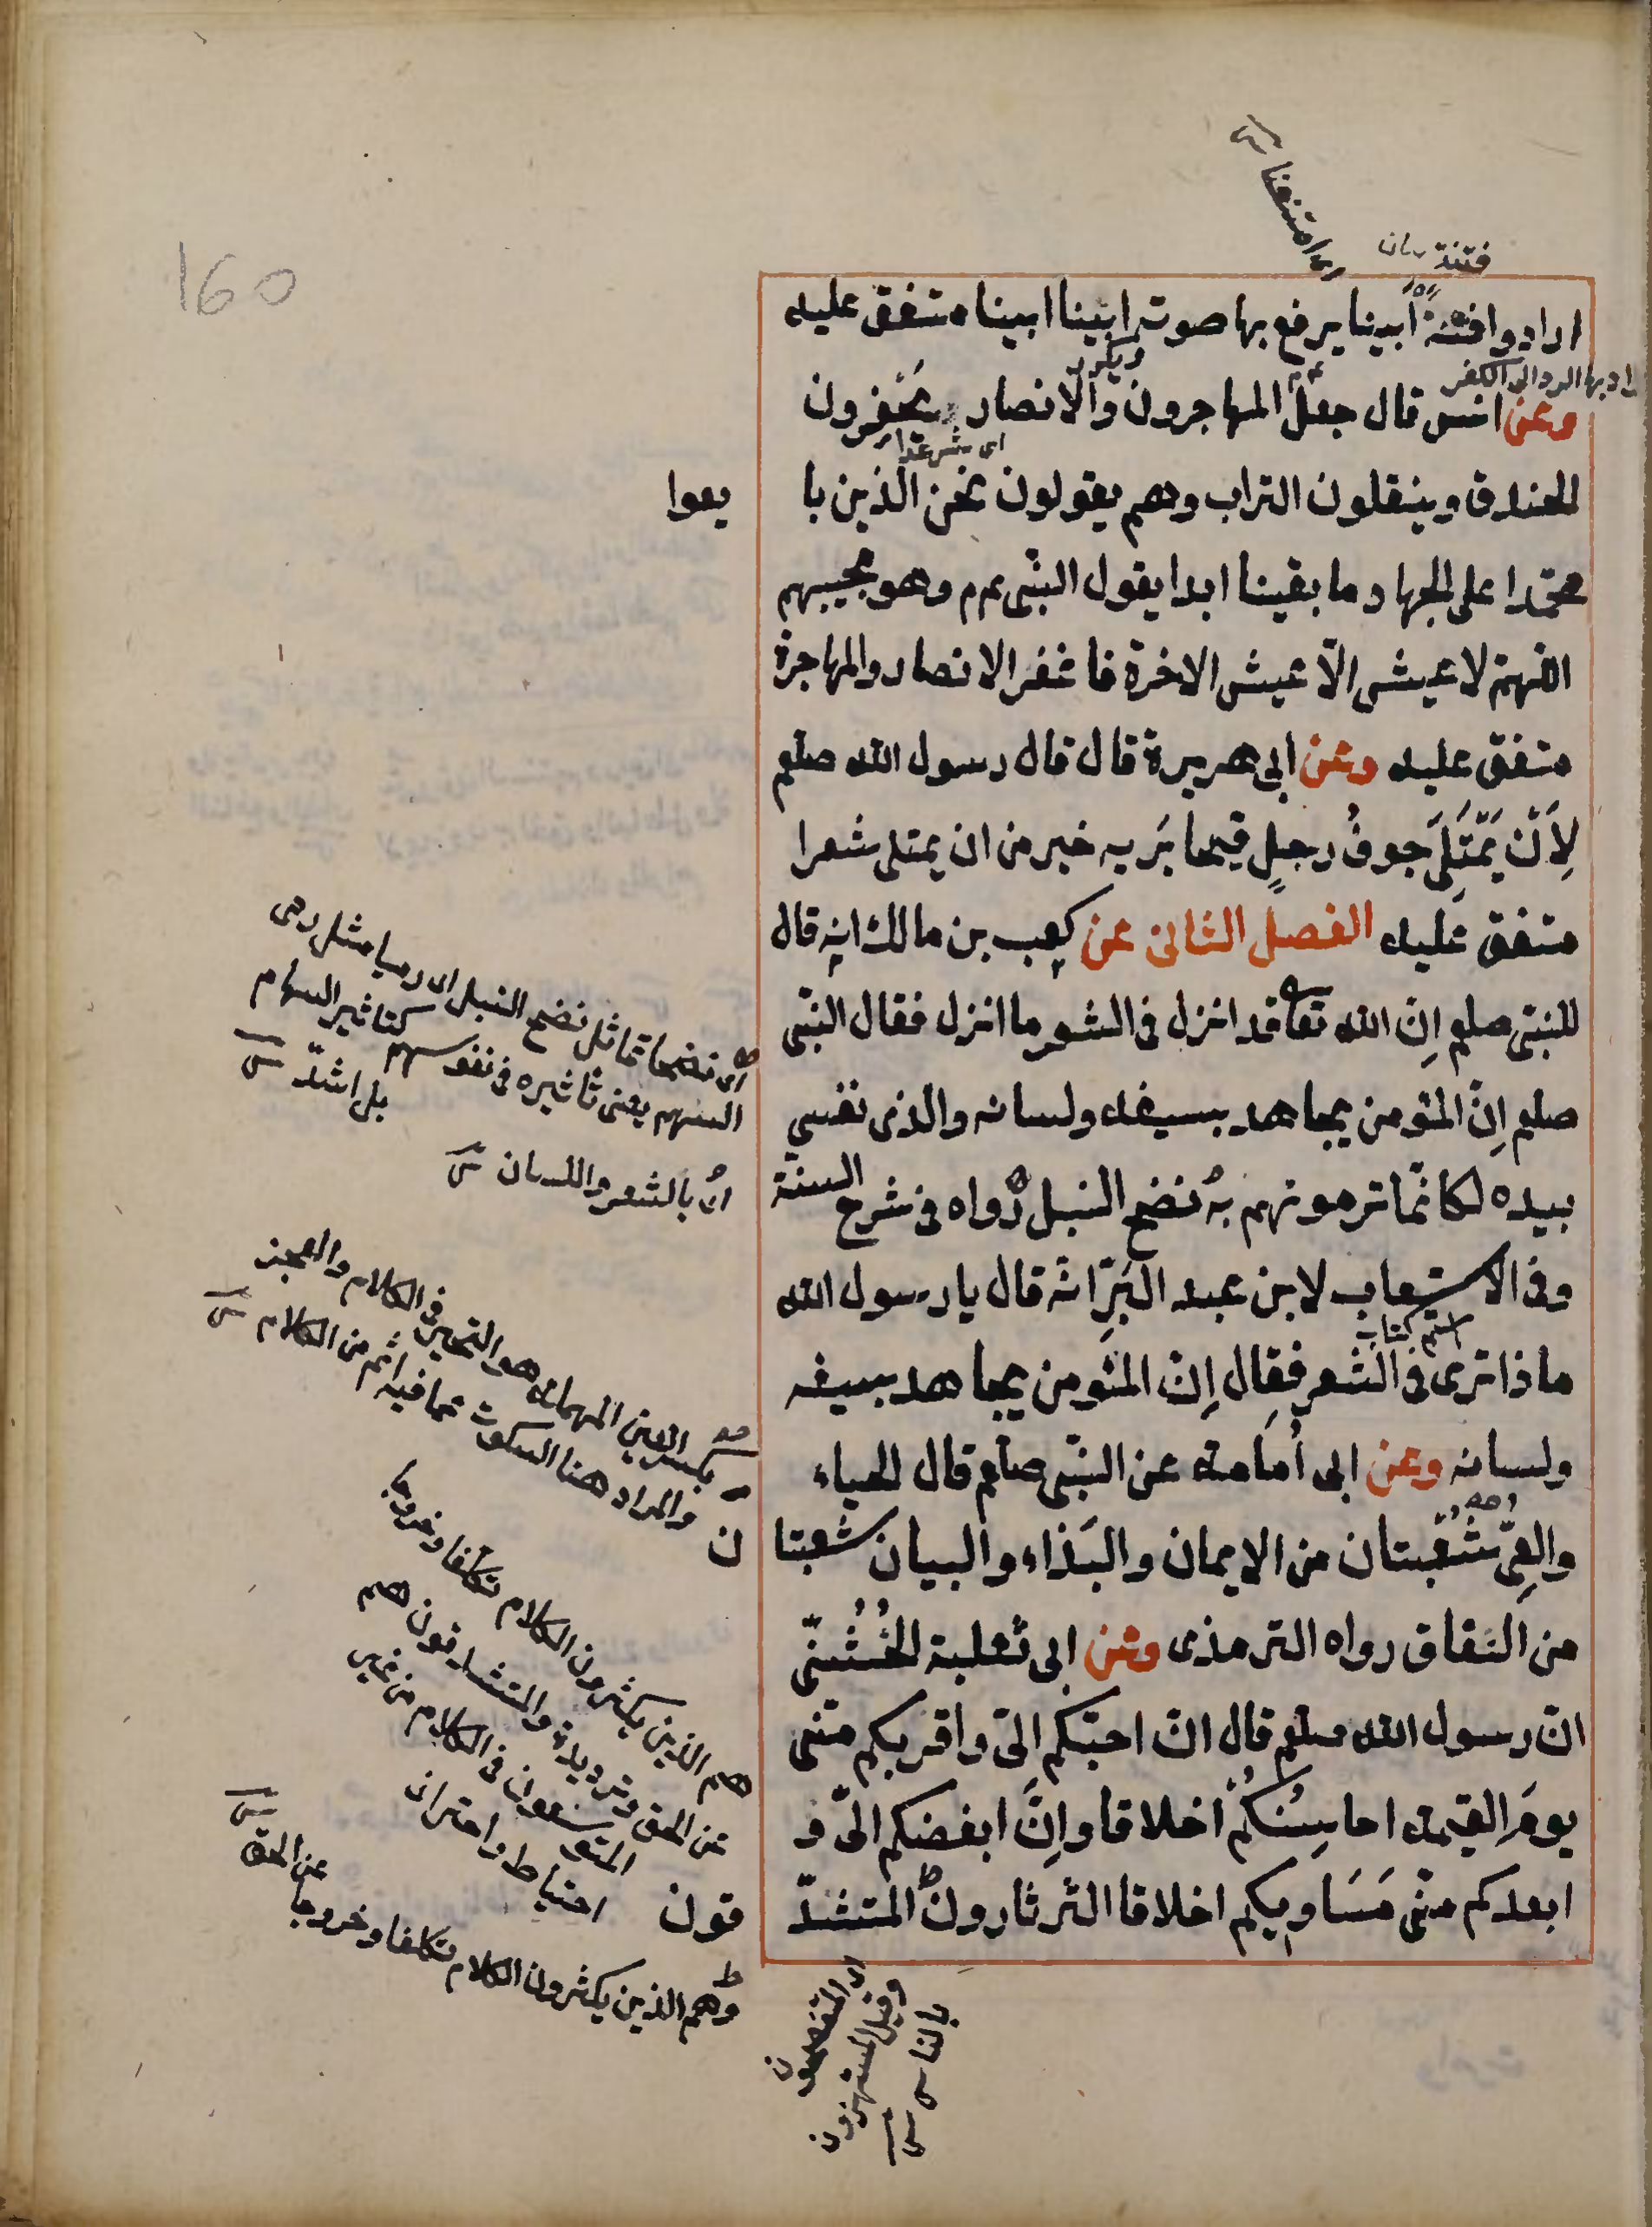 160
اى امتنعنا
فتنة
ارادوا فتنة أبينا يرفع بها صوته ابينا ابينا متفق عليه
ويكرر
اراد بها الرد الى الكفر
وعن انس قال جعل المهاجرون والانصار يحفرون
الخندق وينقلون التراب وهم يقولون نحن الذين با يعوا
محمّدا على الجهاد ما بقينا ابدا يقول النبّى عم م وهو يجيبهم
اللّهمّ لا عيش الّا عيش الاخرة فاغفر الانصار والمهاجرة
متفق عليه وعن ابى هريرة قال قال رسول الله صلعم
لِأَنْ يَمْتَلِىَ جوفُ رجلٍ قيحا يَريه خير من ان يمتلى شعرا
متفق عليه الفصل الثانى عن كعب بن مالك انه قال
للنبّى صلعم اِنّ الله تعا قد انزل فى الشعر ما انزل فقال النبّى
صلعم اِنّ المئومن يجاهد بسيفه ولسانه والذى نفسي
بيده لكانّما ترمونهم به نضح النبل رواه فى شرح السنة
وفى الاستيعاب لابن عبد البَرِّ انّه قال يا رسول الله
اسم كتاب
ماذا ترى فى الشعر فقال اِنّ المئومن يجاهد بسيفه
ولسانه وعن ابى أمامة عن النبّى صلعم قال الحياء
والعِىّ شُعْبتان من الايمان والبَذاء والبيان شعبتا ن
من النفاق رواه الترمذى وعن ابى ثعلبة الخُشُنىّ
انّ رسول الله صلعم قال انّ احبّكم الىّ واقربكم منّى
يومَ القيمة احاسِنُكُمْ اخلاقا واِنّ ابغضكم الىّ و
ابعدكم منّى مَسَاويكم اخلاقا الثرثارون المتشدّ قون
اى نضحا تماثل نضح النبل اى رميا مثل رمى
السهم يعنى تاثيره فى نفوسهم كتاثير السهام
بل اشدّ
اى بالشعر واللسان
بكسر العين المهملة هو التحيّر فى الكلام والعجز
والمراد هنا السكوت عما فيه اثم من الكلام
هم الذين يكثرون الكلام تكلّفا وخروجا
عن الحق وترديدة والمتشدقون هم
المتوسّعون فى الكلام من غير
احتياط واحتراز
وهم الذين يكثرون الكلام تكلفا وخروجا
عن الحق
اى المتفصحون
وقيل المستهزؤن
بالناس